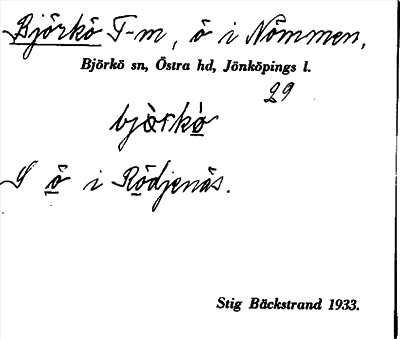 Björkö T-m, ö i Nömmen,
Björkö sn, Östra hd, Jönköpings l.
29
bjòrkò
S ö i Rödjenäs.
Stig Bäckstrand 1933.